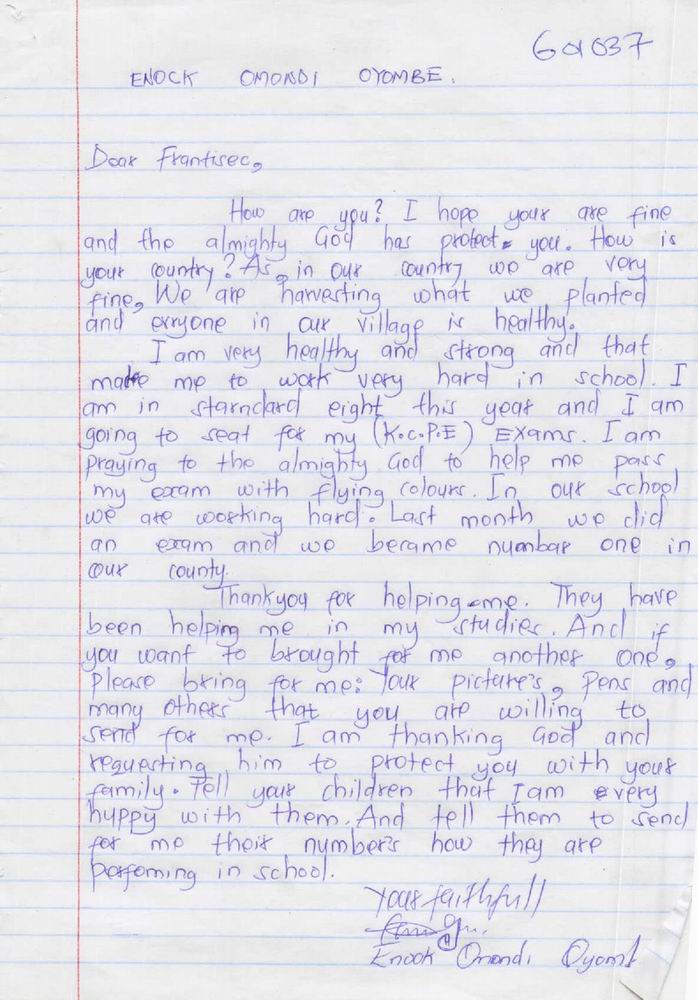 601037
ENOCK OMONDI OYOMBE.
Dear Frantisec,
How are you? I hope your are fine
and the almighty God has protect you. How is
your country? As, in our country we are very
fine, We are harvesting what we planted
and exryone in our village is healthy.
I am very healthy and strong and that
make me to work very hard in school. I
am in starndard eight this year and I am
going to seat for my (K.C.P.E) EXAMS. I am
praying to the almighty God to help me pass
my exam with flying colours. In our school
we are working hard. Last month we did
an exam and we became number one in
our county.
Thankyou for helping me. They have
been helping me in my studies. And if
you want to brought for me another one,
Please bring for me: Your picture's, Pens and
many others that you are willing to
send for me. I am thanking God and
requesting him to protect you with your
family. Tell your children that I am very
huppy with them. And tell them to send
for me their number's how they are
perfoming in school.
Your faithfull
Enock Omondi